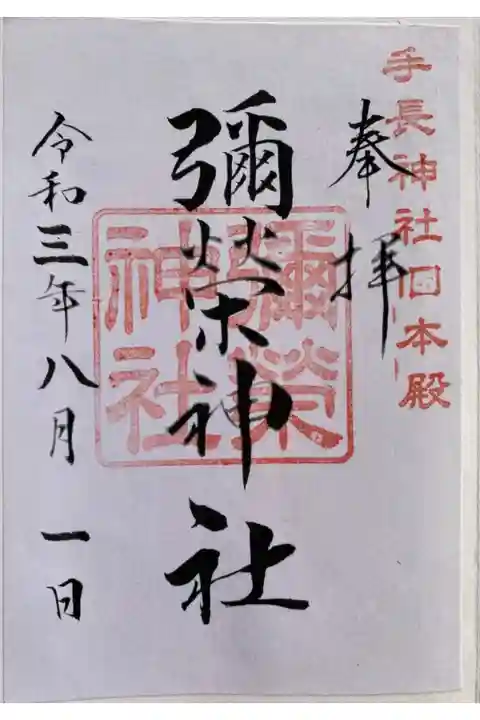 手長神社旧本殿
奉拝
彌榮神社
彌榮神社
令和三年八月一日